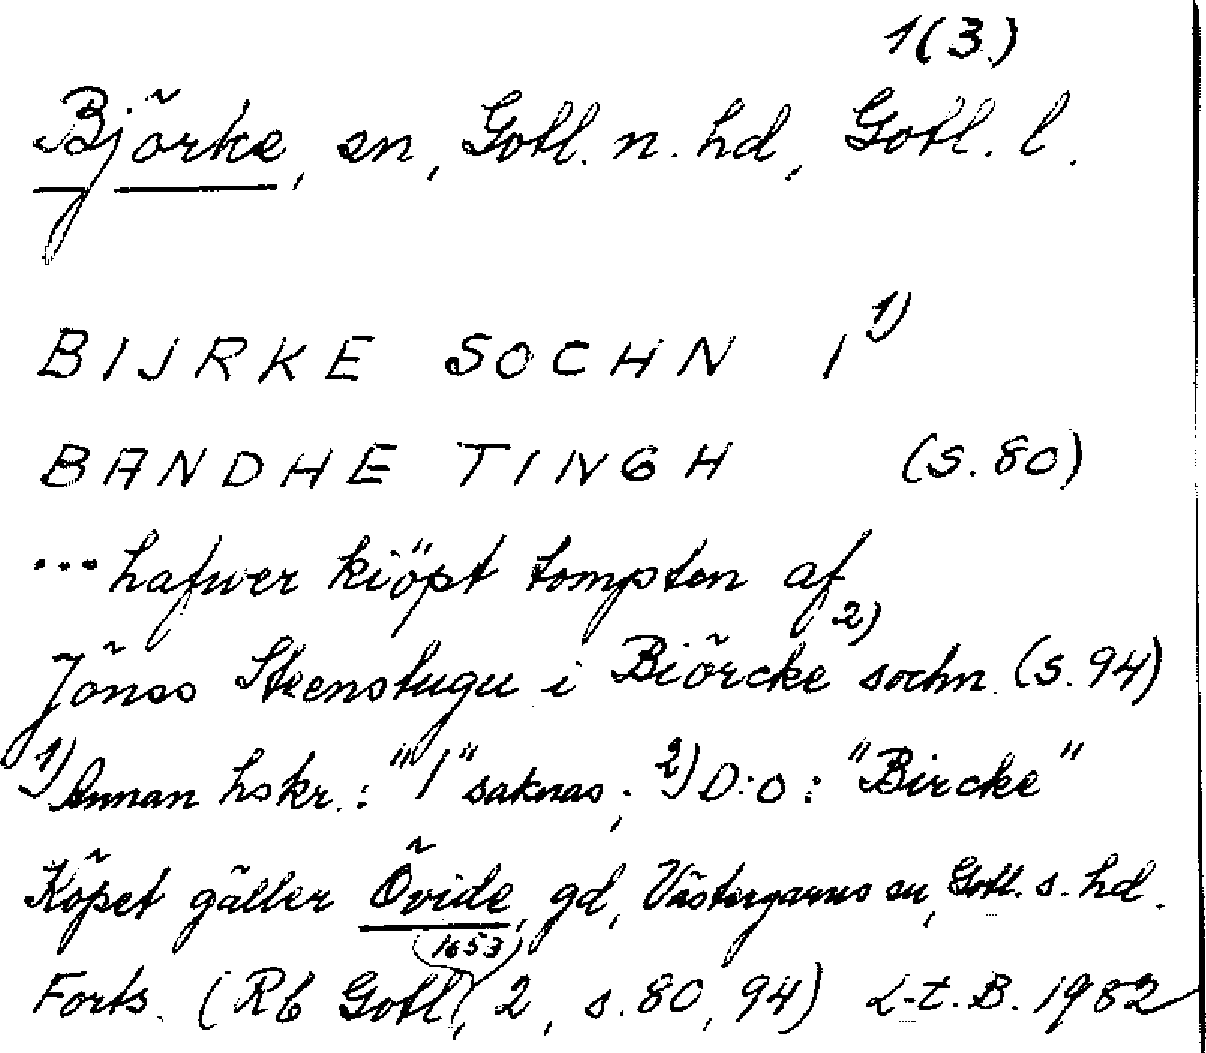 1(3.)
Björke, sn, Gotl. n. hd, Gotl. l.
BIJRKE SOCHN I 1)
BANDHE TINGH (S. 80)
... hafwer kiöpt tompten af
Jönss Stenstugu i Biörcke 2) sochn. (S. 94)
1) Annan hskr.: "I" saknas; 2) D:o: "Bircke"
Köpet gäller Övide, gd, Västergarns sn, Gotl. s. hd.
(1653)
Forts. (Rb Gotl, 2, s. 80, 94) L-t. B. 1982